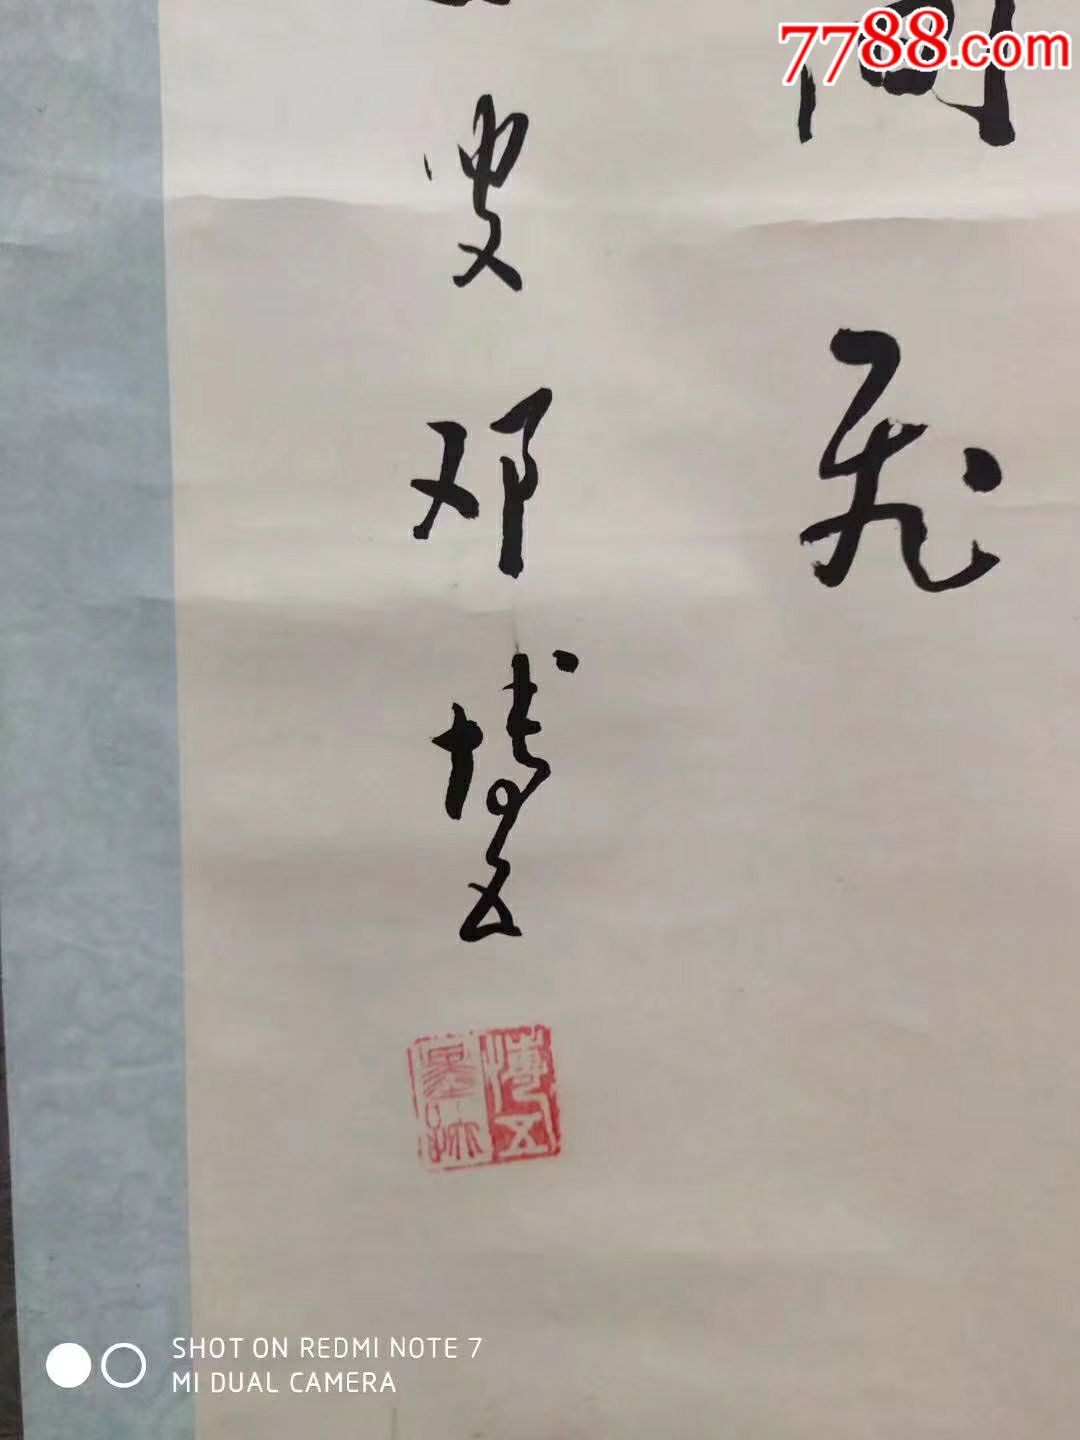 7788.com
间
飞
叟邓博五
博五
墨迹
SHOT ON REDMI NOTE 7
MI DUAL CAMERA